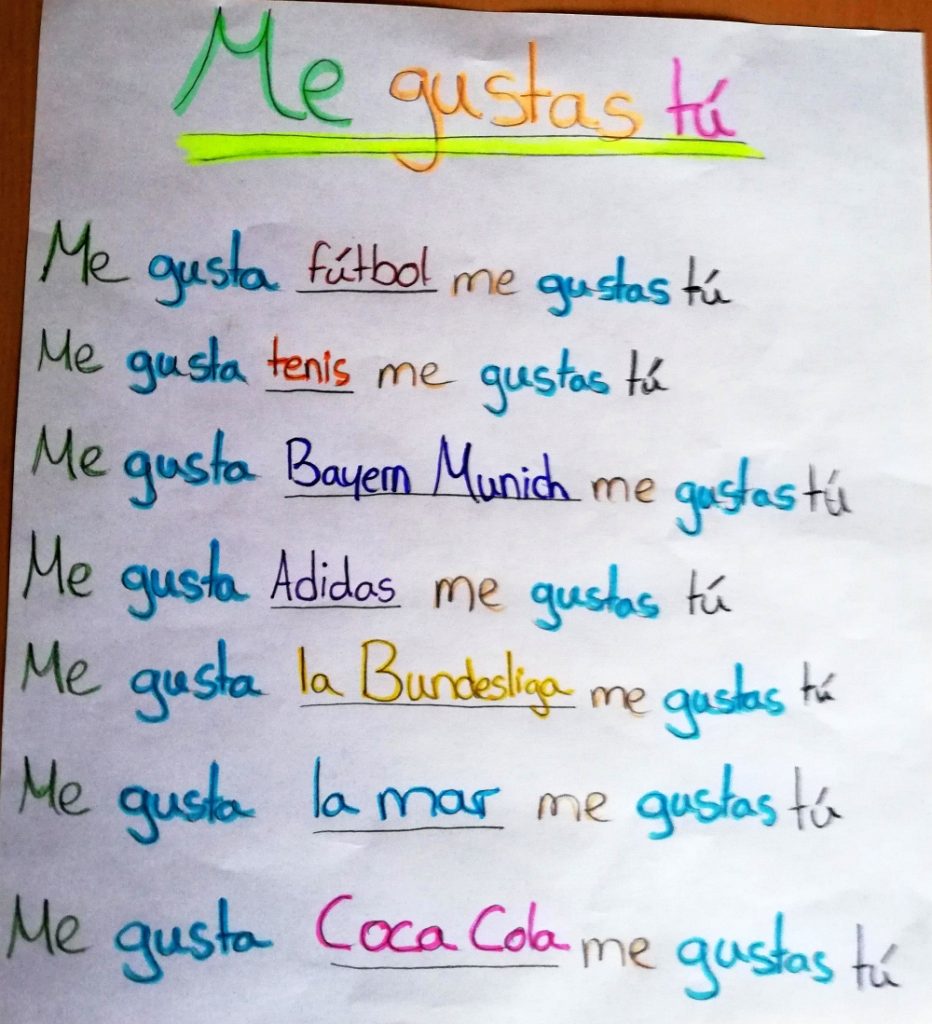 Me gustas tú
Me gusta fútbol me gustas tú
Me gusta tenis me gustas tú
Me gusta Bayern Munich me gustas tú
Me gusta Adidas me gustas tú
Me gusta la Bundesliga me gustas tú
Me gusta la mar me gustas tú
Me gusta Coca Cola me gustas tú